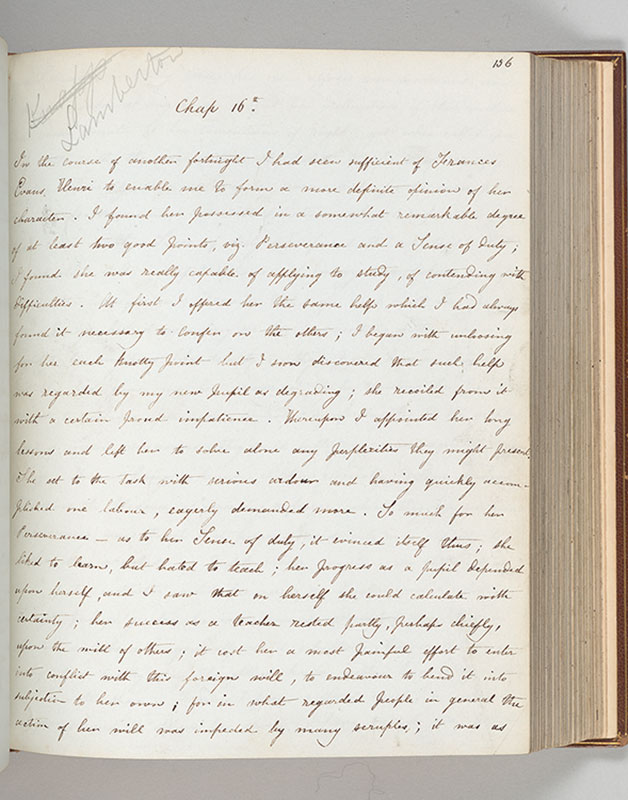 136
Lamberton
Chap 16.
In the course of another fortnight I had seen sufficient of Frances
Evans, Henri to enable me to form a more definite opinion of her
character. I found her possessed in a somewhat remarkable degree
of at least two good points, viz. Perseverance and a Sense of duty;
I found she was really capable of applying to study, of contending with
difficulties. At first I offered her the same help which I had always
found it necessary to confer on the others; I began with unloosing
for her each knotty point but I soon discovered that such help
was regarded by my new pupil as degrading; she recoiled from it
with a certain proud impatience. Thereupon I appointed her long
lessons and left her to solve alone any perplexities they might present.
She set to the task with serious ardour and having quickly accom-
plished one labour, eagerly demanded more. So much for her
Perseverance — as to her Sense of duty, it evinced itself thus; she
liked to learn, but hated to teach; her progress as a pupil depended
upon herself, and I saw that on herself she could calculate with
certainty; her success as a teacher rested partly, perhaps chiefly,
upon the will of others; it cost her a most painful effort to enter
into conflict with this foreign will, to endeavour to bend it into
subjection to her own; for in what regarded people in general the
action of her will was impeded by many scruples; it was as